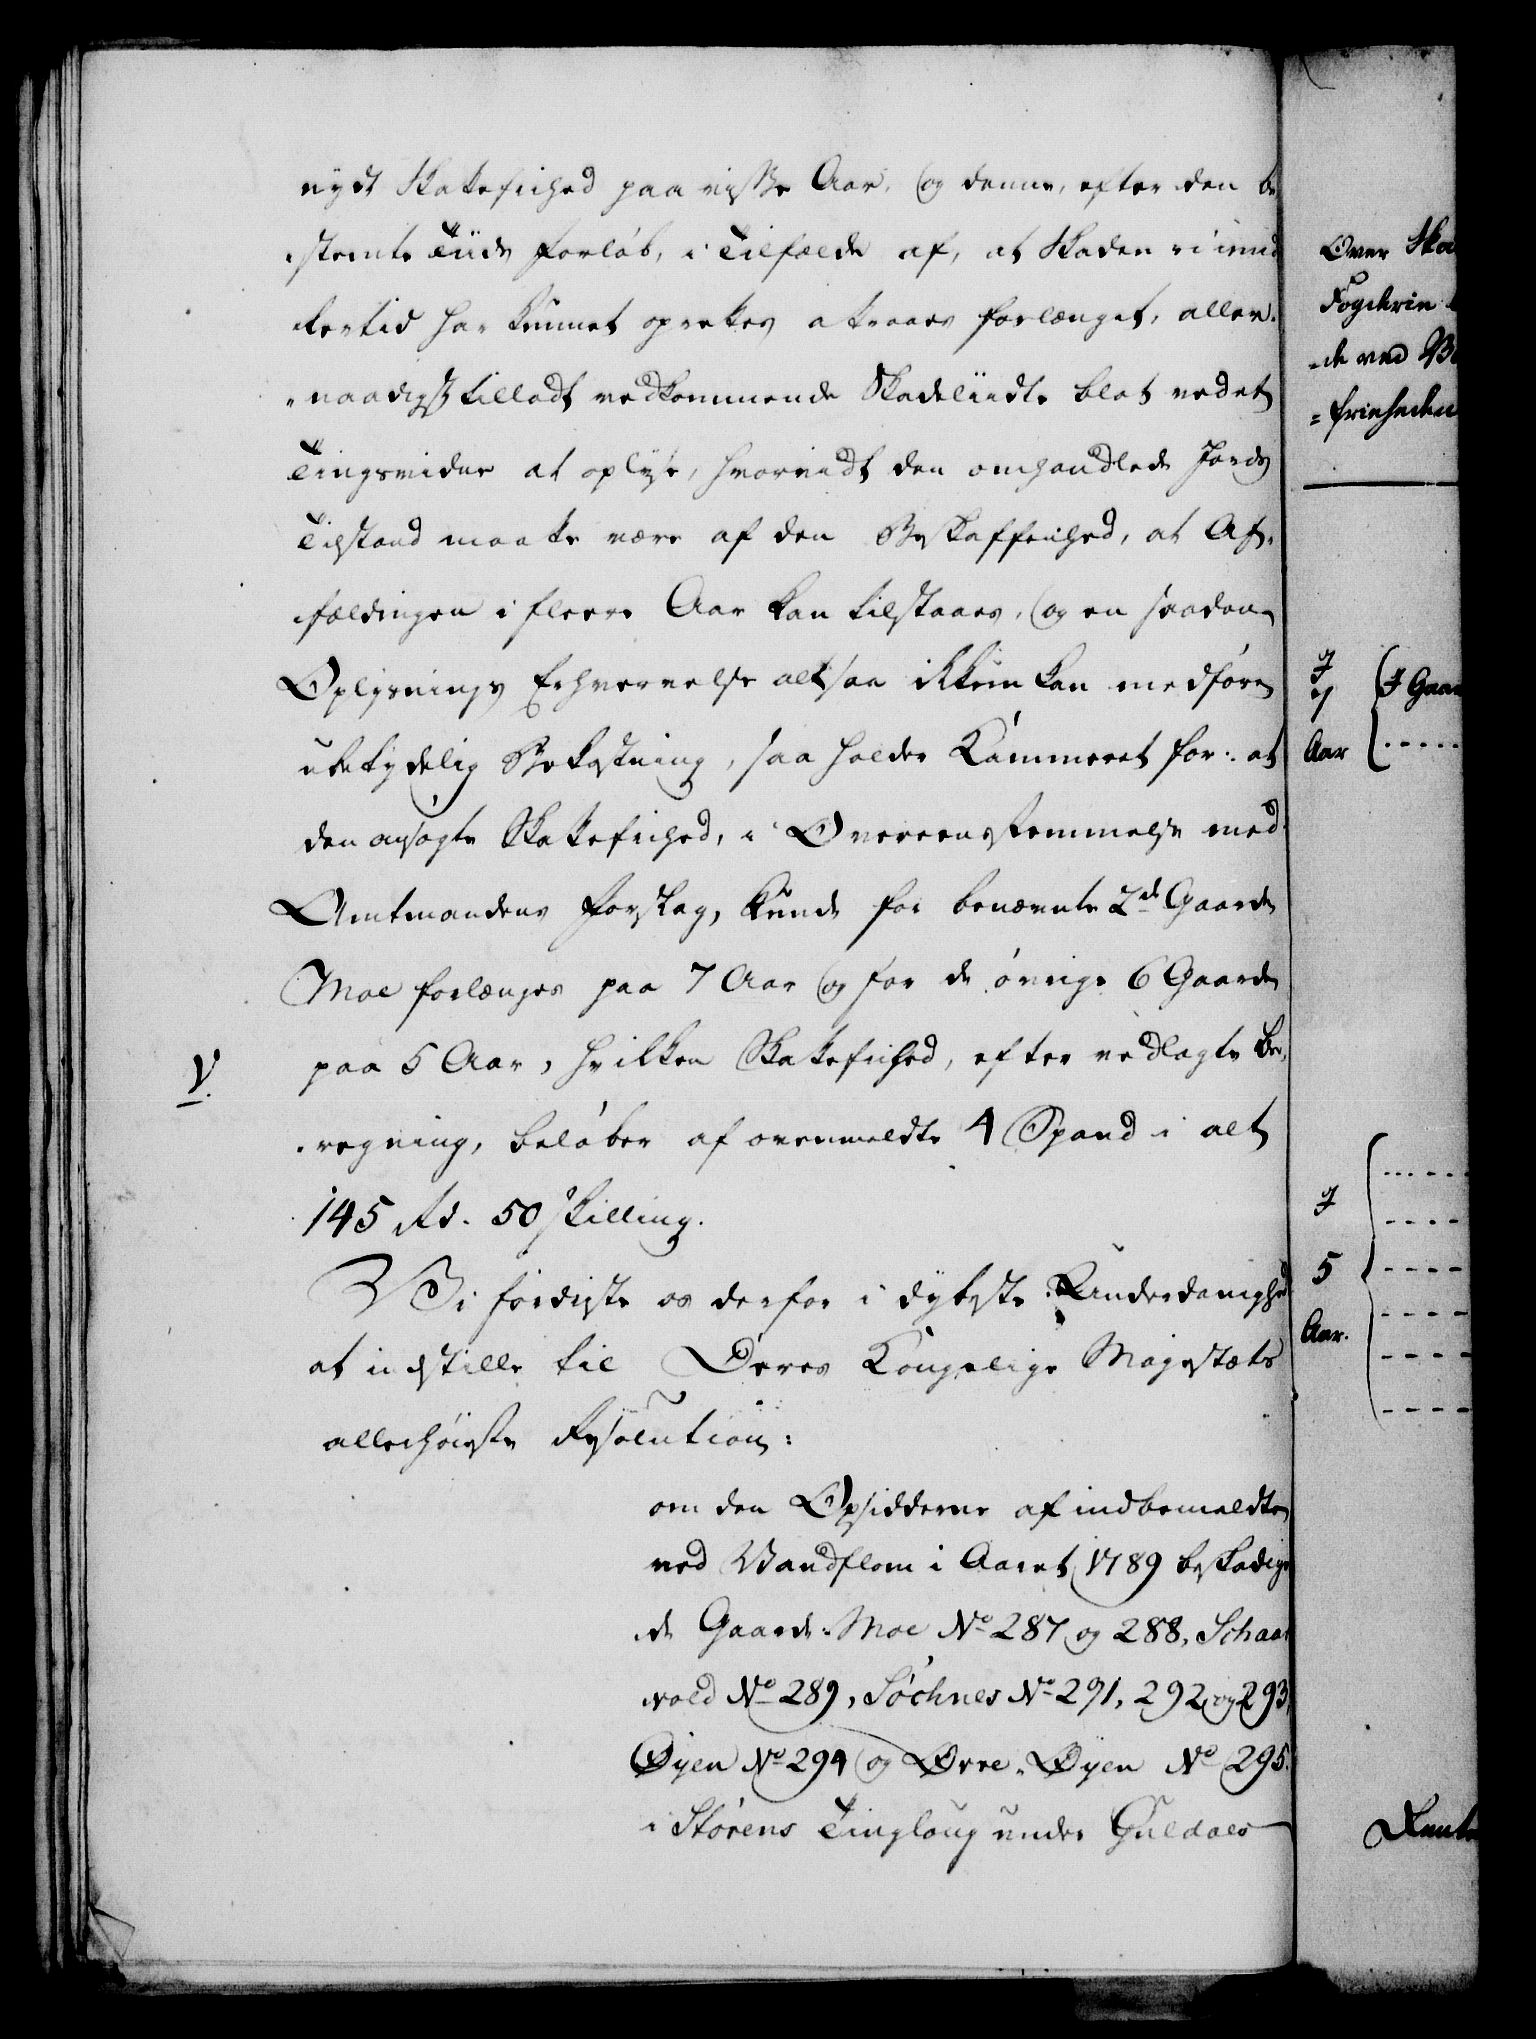 nydt Skatefrihed paa visse Aar, og denne, efter den be
stemte Tiids Forløb, i Tilfælde af, at Skaden ei imid
lertid har kunnet oprettes attraaes forlænget, aller-
naadigst tilladt vedkommende Skadeliidte blot ved et
Tingsvidne at oplyse, hvorvidt den omhandlede Jords
Tilstand maatte være af den Beskaffenhed, at Af-
fældingen i fleere Aar kan tilstaaes, og en saadan
Oplysnings Erhvervelse altsaa ikkun kan medføre
ubetydelig Bekostning, saa holder Kammeret for: at
den ansøgte Skatefrihed, i Overeensstemmelse med
Amtmandens Forslag, kunde for benævnte 2de Gaarde
Moe forlænges paa 7 Aar og for de øvrige 6 Gaarde
V.
paa 5 Aar, hvilken Skatefrihed, efter vedlagte Be-
regning, beløber af ovenmeldte 4 Spand i alt
145 Rd. 50 skilling.
Vi fordriste os derfor i dybeste Underdanighed
at indstille til Deres Kongelige Majestæts
allerhøieste Resolution:
om den Opsidderne af indbemeldte
ved Vandflom i Aaret 1789 beskadige
de Gaarde: Moe No 287 og 288, Schaar
vold No 289, Søchnes No 291, 292 og 293,
Øyen No 294 og Øvre-Øyen No 295.
i Størens Tinglaug under Guldals
Over Ska
Fogderie
-de ved
=friheden
7
Aar
Gaar
5
Aar.
Rente